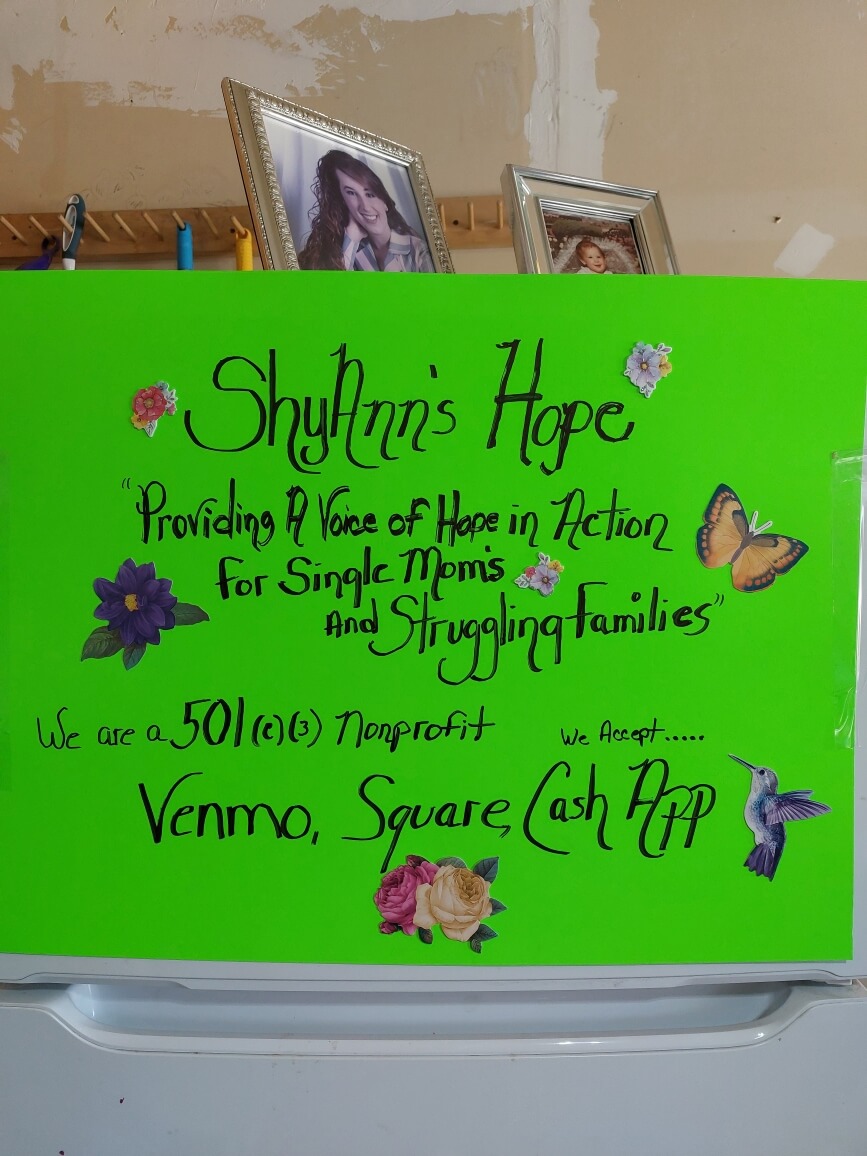 ShyAnn's Hope
"Providing A Voice of Hope in Action
For Single Mom's
And Struggling Families"
We are a 501(c)(3) Nonprofit
We Accept.....
Venmo, Square, Cash App